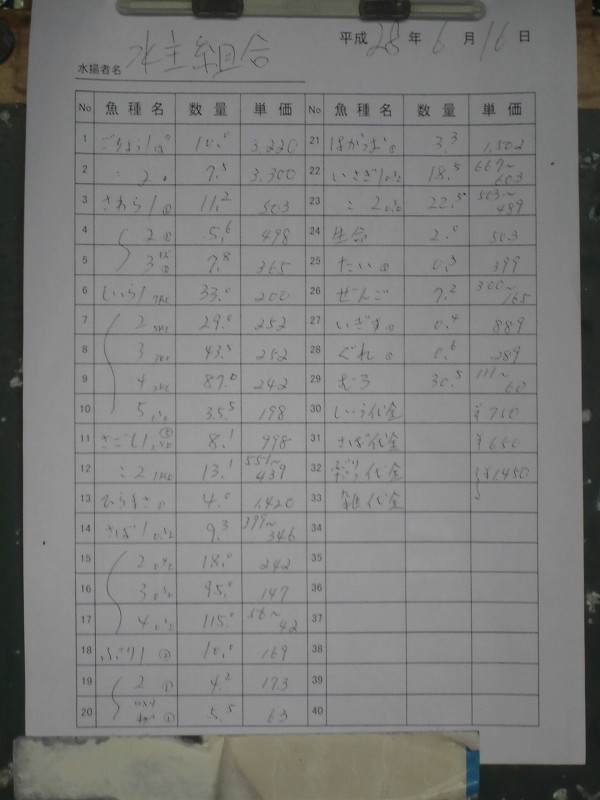 平成 28 年 6 月 16 日
水揚者名 水主組合
No 魚種名 数量 単価 No 魚種名 数量 単価
1 10.0 3,220 21 3.3 1,502
2 〃 2 7.5 3,300 22 いさぎ1 18.5 667~603
3 さわら1 11.2 503 23 〃 2 22.5 503~489
4 2 5.6 498 24 2.0 503
5 3 7.8 365 25 たい 0.3 399
6 しいら1 33.0 200 26 ぜんご 7.2 300~165
7 2 29.0 252 27 いぎす 0.4 889
8 3 43.5 252 28 ぐれ 0.6 289
9 4 87.0 242 29 むろ 30.5 111~60
10 5 35.5 198 30 しいら代金 ¥750
11 さごし1 8.1 998 31 さば代金 ¥650
12 〃 2 13.1 551~439 32 代金 ¥1,450
13 ひらまさ 4.0 1,420 33 雑代金
14 さば1 9.3 399~346 34
15 2 18.0 242 35
16 3 95.0 147 36
17 4 115.0 56~42 37
18 ぶり1 10.0 169 38
19 2 4.2 173 39
20 5.5 63 40